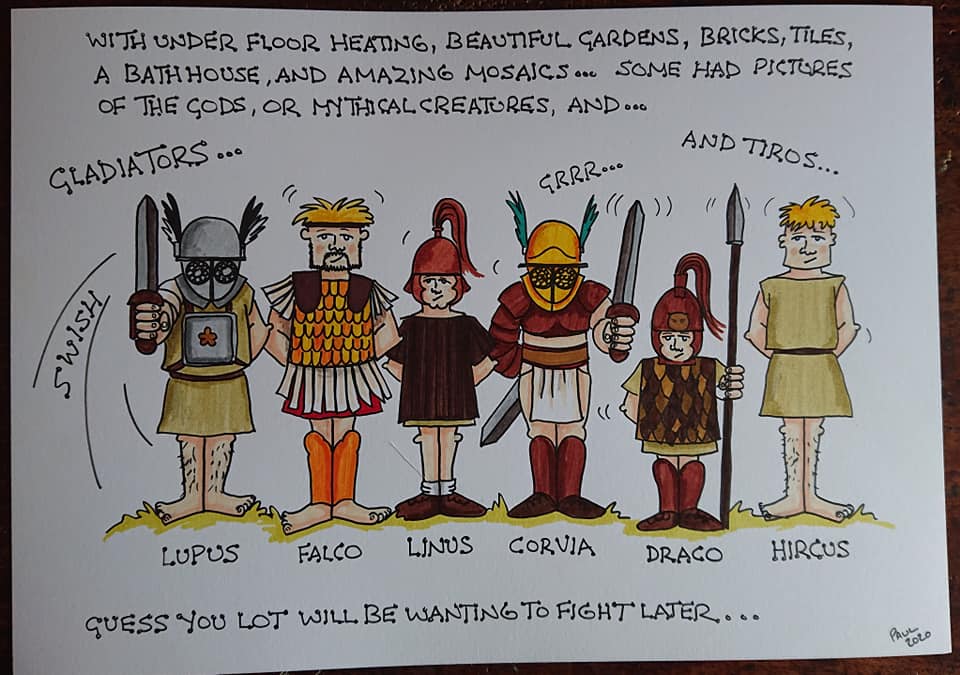 WITH UNDER FLOOR HEATING, BEAUTIFUL GARDENS, BRICKS, TILES,
A BATH HOUSE, AND AMAZING MOSAICS... SOME HAD PICTURES
OF THE GODS, OR MYTHICAL CREATURES, AND...
GLADIATORS...
GRRR...
AND TIROS...
SWISH
LUPUS
FALCO
LINUS
CORVIA
DRACO
HIRCUS
GUESS YOU LOT WILL BE WANTING TO FIGHT LATER...
PAUL
2020